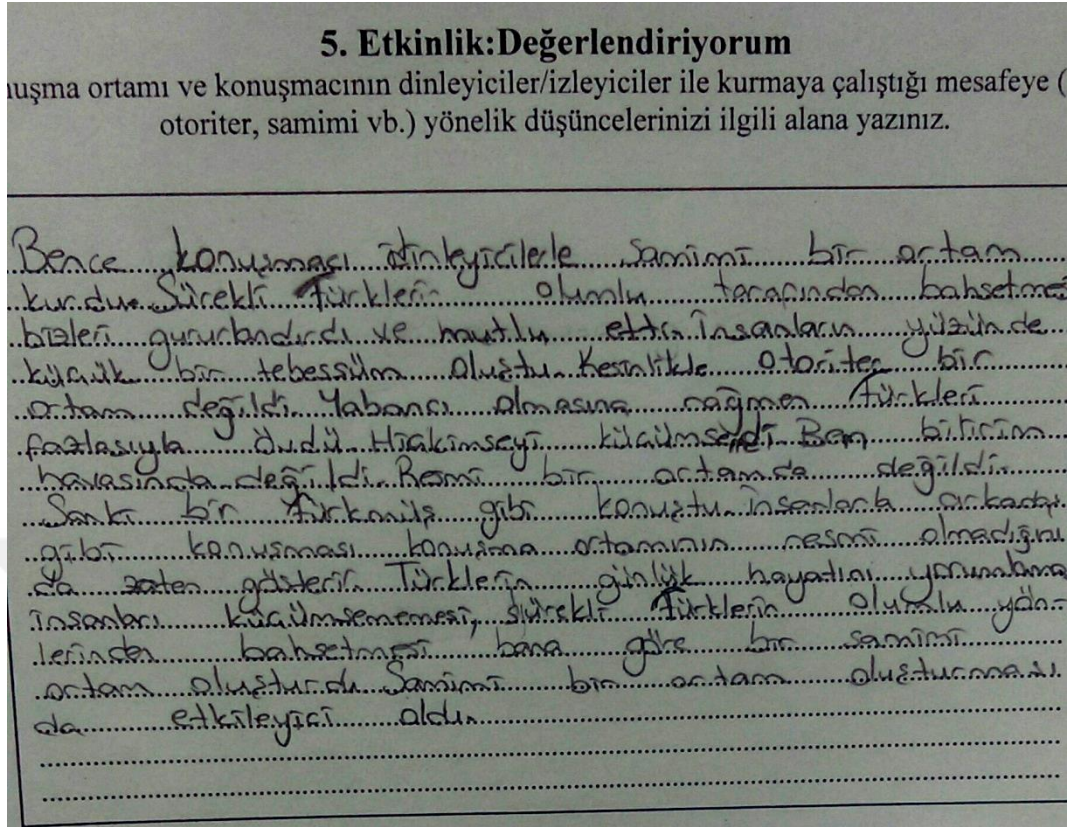 5. Etkinlik:Değerlendiriyorum
nuşma ortamı ve konuşmacının dinleyiciler/izleyiciler ile kurmaya çalıştığı mesafeye (
otoriter, samimi vb.) yönelik düşüncelerinizi ilgili alana yazınız.
Bence konuşmacı dinleyicilerle samimi bir ortam
kurdu. Sürekli Türklerin olumlu tarafından bahsetmesi
bizleri gururlandırdı ve mutlu etti. İnsanların yüzünde
küçük bir tebessüm oluştu. Kesinlikle otoriter bir
ortam değildi. Yabancı olmasına rağmen Türkleri
fazlasıyla övdü. Hiçkimseyi küçümsemedi. Ben bilirim
havasında değildi. Resmi bir ortamda değildi.
Sanki bir Türkmüş gibi konuştu. İnsanlarla arkadaş
gibi konuşması konuşma ortamının resmi olmadığını
da zaten gösterir. Türklerin günlük hayatını yorumlama
insanları küçümsememesi, sürekli Türklerin olumlu yön-
lerinden bahsetmesi bana göre bir samimi
ortam oluşturdu. Samimi bir ortam oluşturması
da etkileyici oldu.